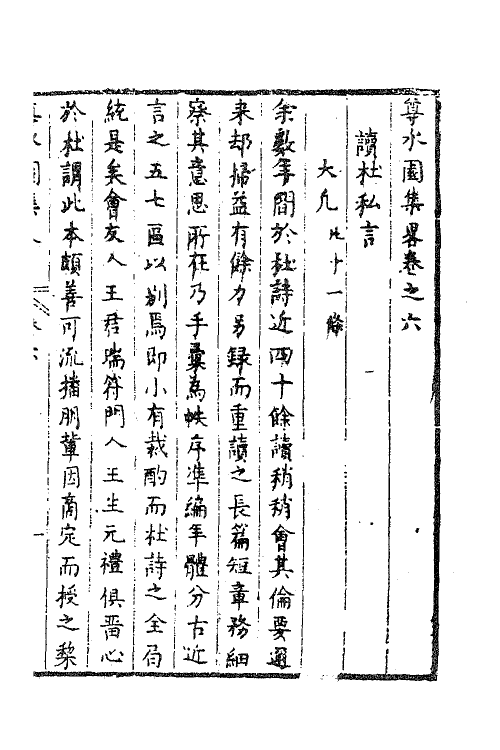 尊水園集畧卷之六
讀杜私言
大凡 凡十一條
余數年間於杜詩近四十餘讀稍稍會其倫要邇
來却掃益有餘力另錄而重讀之長篇短章務細
察其意思所在乃手彙為帙序準編年體分古近
言之五七區以別焉即小有裁酌而杜詩之全局
統是矣會友人王君瑞符門人王生元禮俱嗇心
於杜謂此本頗善可流播朋輩因商定而授之棃